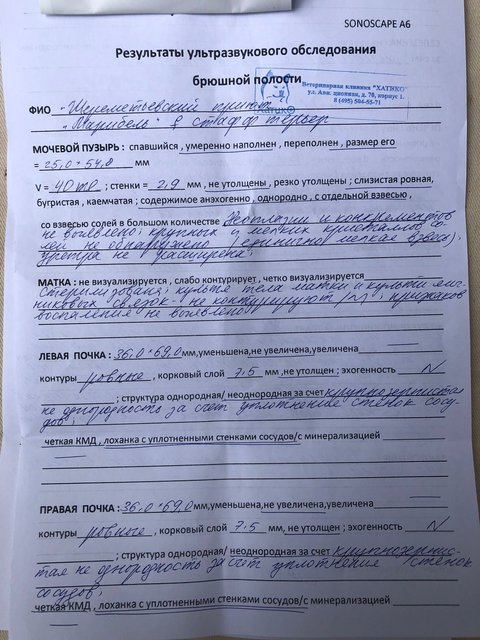 SONOSCAPE A6
Результаты ультразвукового обследования
брюшной полости
Ветеринарная клиника "ХАТИКО"
ул. Ави. ционная, д. 70, корпус 1.
8 (495) 504-55-71
Хатико
ФИО "Шереметьевский приют"
"Мирибель" ♀ стафф терьер
МОЧЕВОЙ ПУЗЫРЬ : спавшийся , умеренно наполнен , переполнен , размер его
= 25,0 * 54,8 мм
V = 40 мл ; стенки = 2,9 мм , не утолщены , резко утолщены ; слизистая ровная,
бугристая , каемчатая ; содержимое анэхогенно , однородно , с отдельной взвесью ,
со взвесью солей в большом количестве Неоплазии и конкрементов
не выявлено; крупных и мелких кристаллов со-
лей не обнаружено (единично мелкая взвесь).
уретра не расширена.
МАТКА : не визуализируется , слабо контурирует , четко визуализируется
Стерилизована; культя тела матки и культи яич-
никовых связок не контурируют (N), признаков
воспаления не выявлено
ЛЕВАЯ ПОЧКА : 36,0 * 69,0 мм,уменьшена,не увеличена,увеличена
контуры ровные , корковый слой 7,5 мм ,не утолщен ; эхогенность N
; структура однородная/ неоднородная за счет крупнозернистая
не однородность за счет уплотнение стенок сосу-
дов;
четкая КМД , лоханка с уплотненными стенками сосудов/с минерализацией
ПРАВАЯ ПОЧКА : 36,0 * 69,0 мм,уменьшена,не увеличена,увеличена
контуры ровные , корковый слой 7,5 мм, не утолщен ; эхогенность N
; структура однородная/ неоднородная за счет крупнозернис-
тая не однородность за счет уплотнения стенок
сосудов;
четкая КМД , лоханка с уплотненными стенками сосудов/с минерализацией